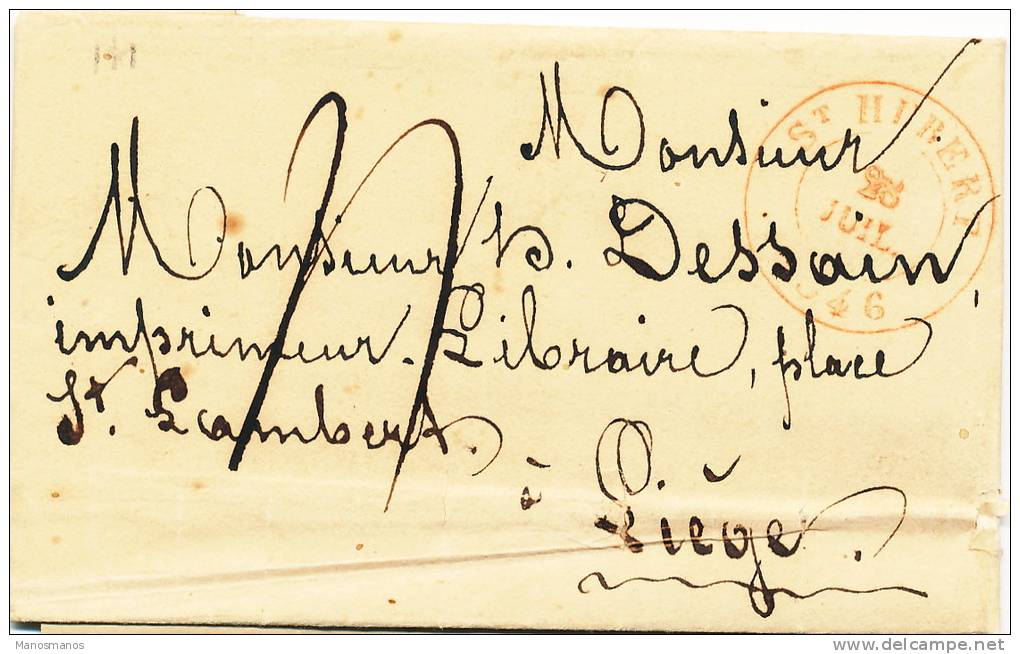 Monsieur
Monsieur H. Dessain,
imprimeur-Libraire, place
St. Lambert.
à Liège.
ST HUBERT
JUIL
46
Manosmanos
delcampe.net